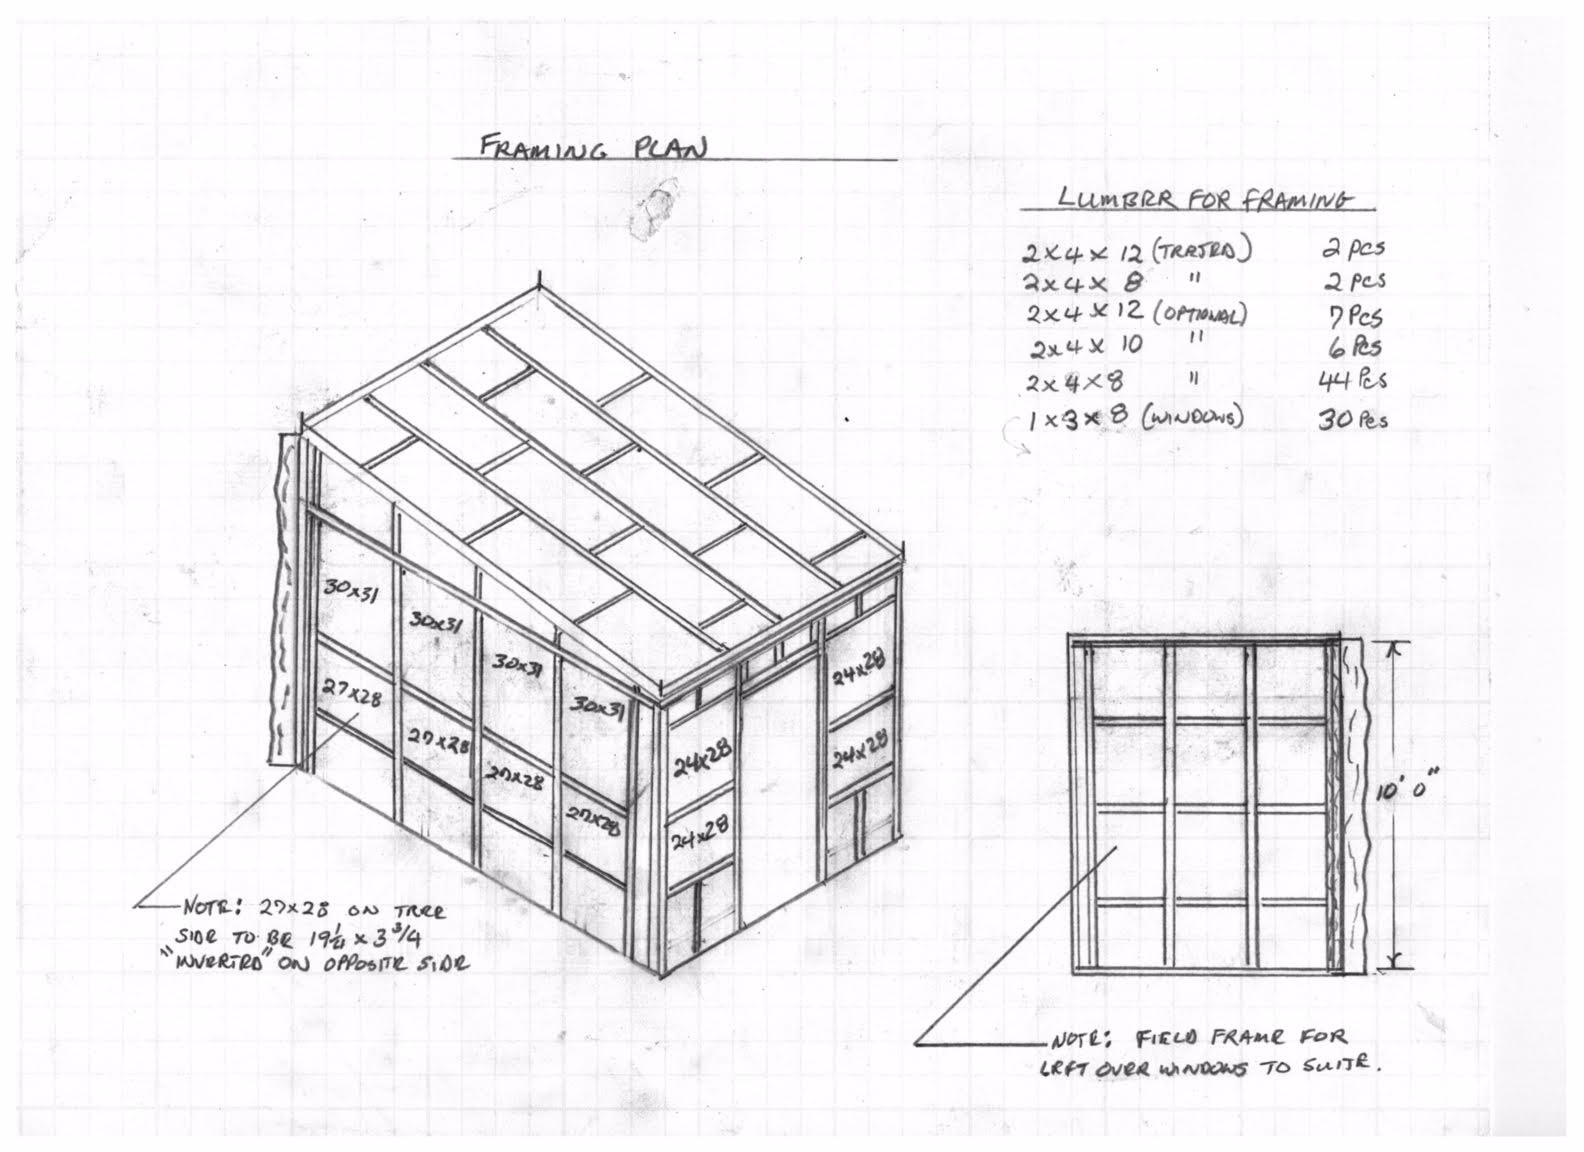 FRAMING PLAN
LUMBER FOR FRAMING
2x4x12 (TREATED) 2 PCS
2x4x8 " 2 PCS
2x4x12 (OPTIONAL) 7 PCS
2x4x10 " 6 PCS
2x4x8 " 44 PCS
1x3x8 (WINDOWS) 30 PCS
30x31
30x31
30x31
30x31
27x28
27x28
27x28
27x28
24x28
24x28
24x28
24x28
10' 0"
NOTE: 27x28 ON TREE
SIDE TO BE 19½ x 3¾
"INVERTED" ON OPPOSITE SIDE
NOTE: FIELD FRAME FOR
LEFT OVER WINDOWS TO SUITE.